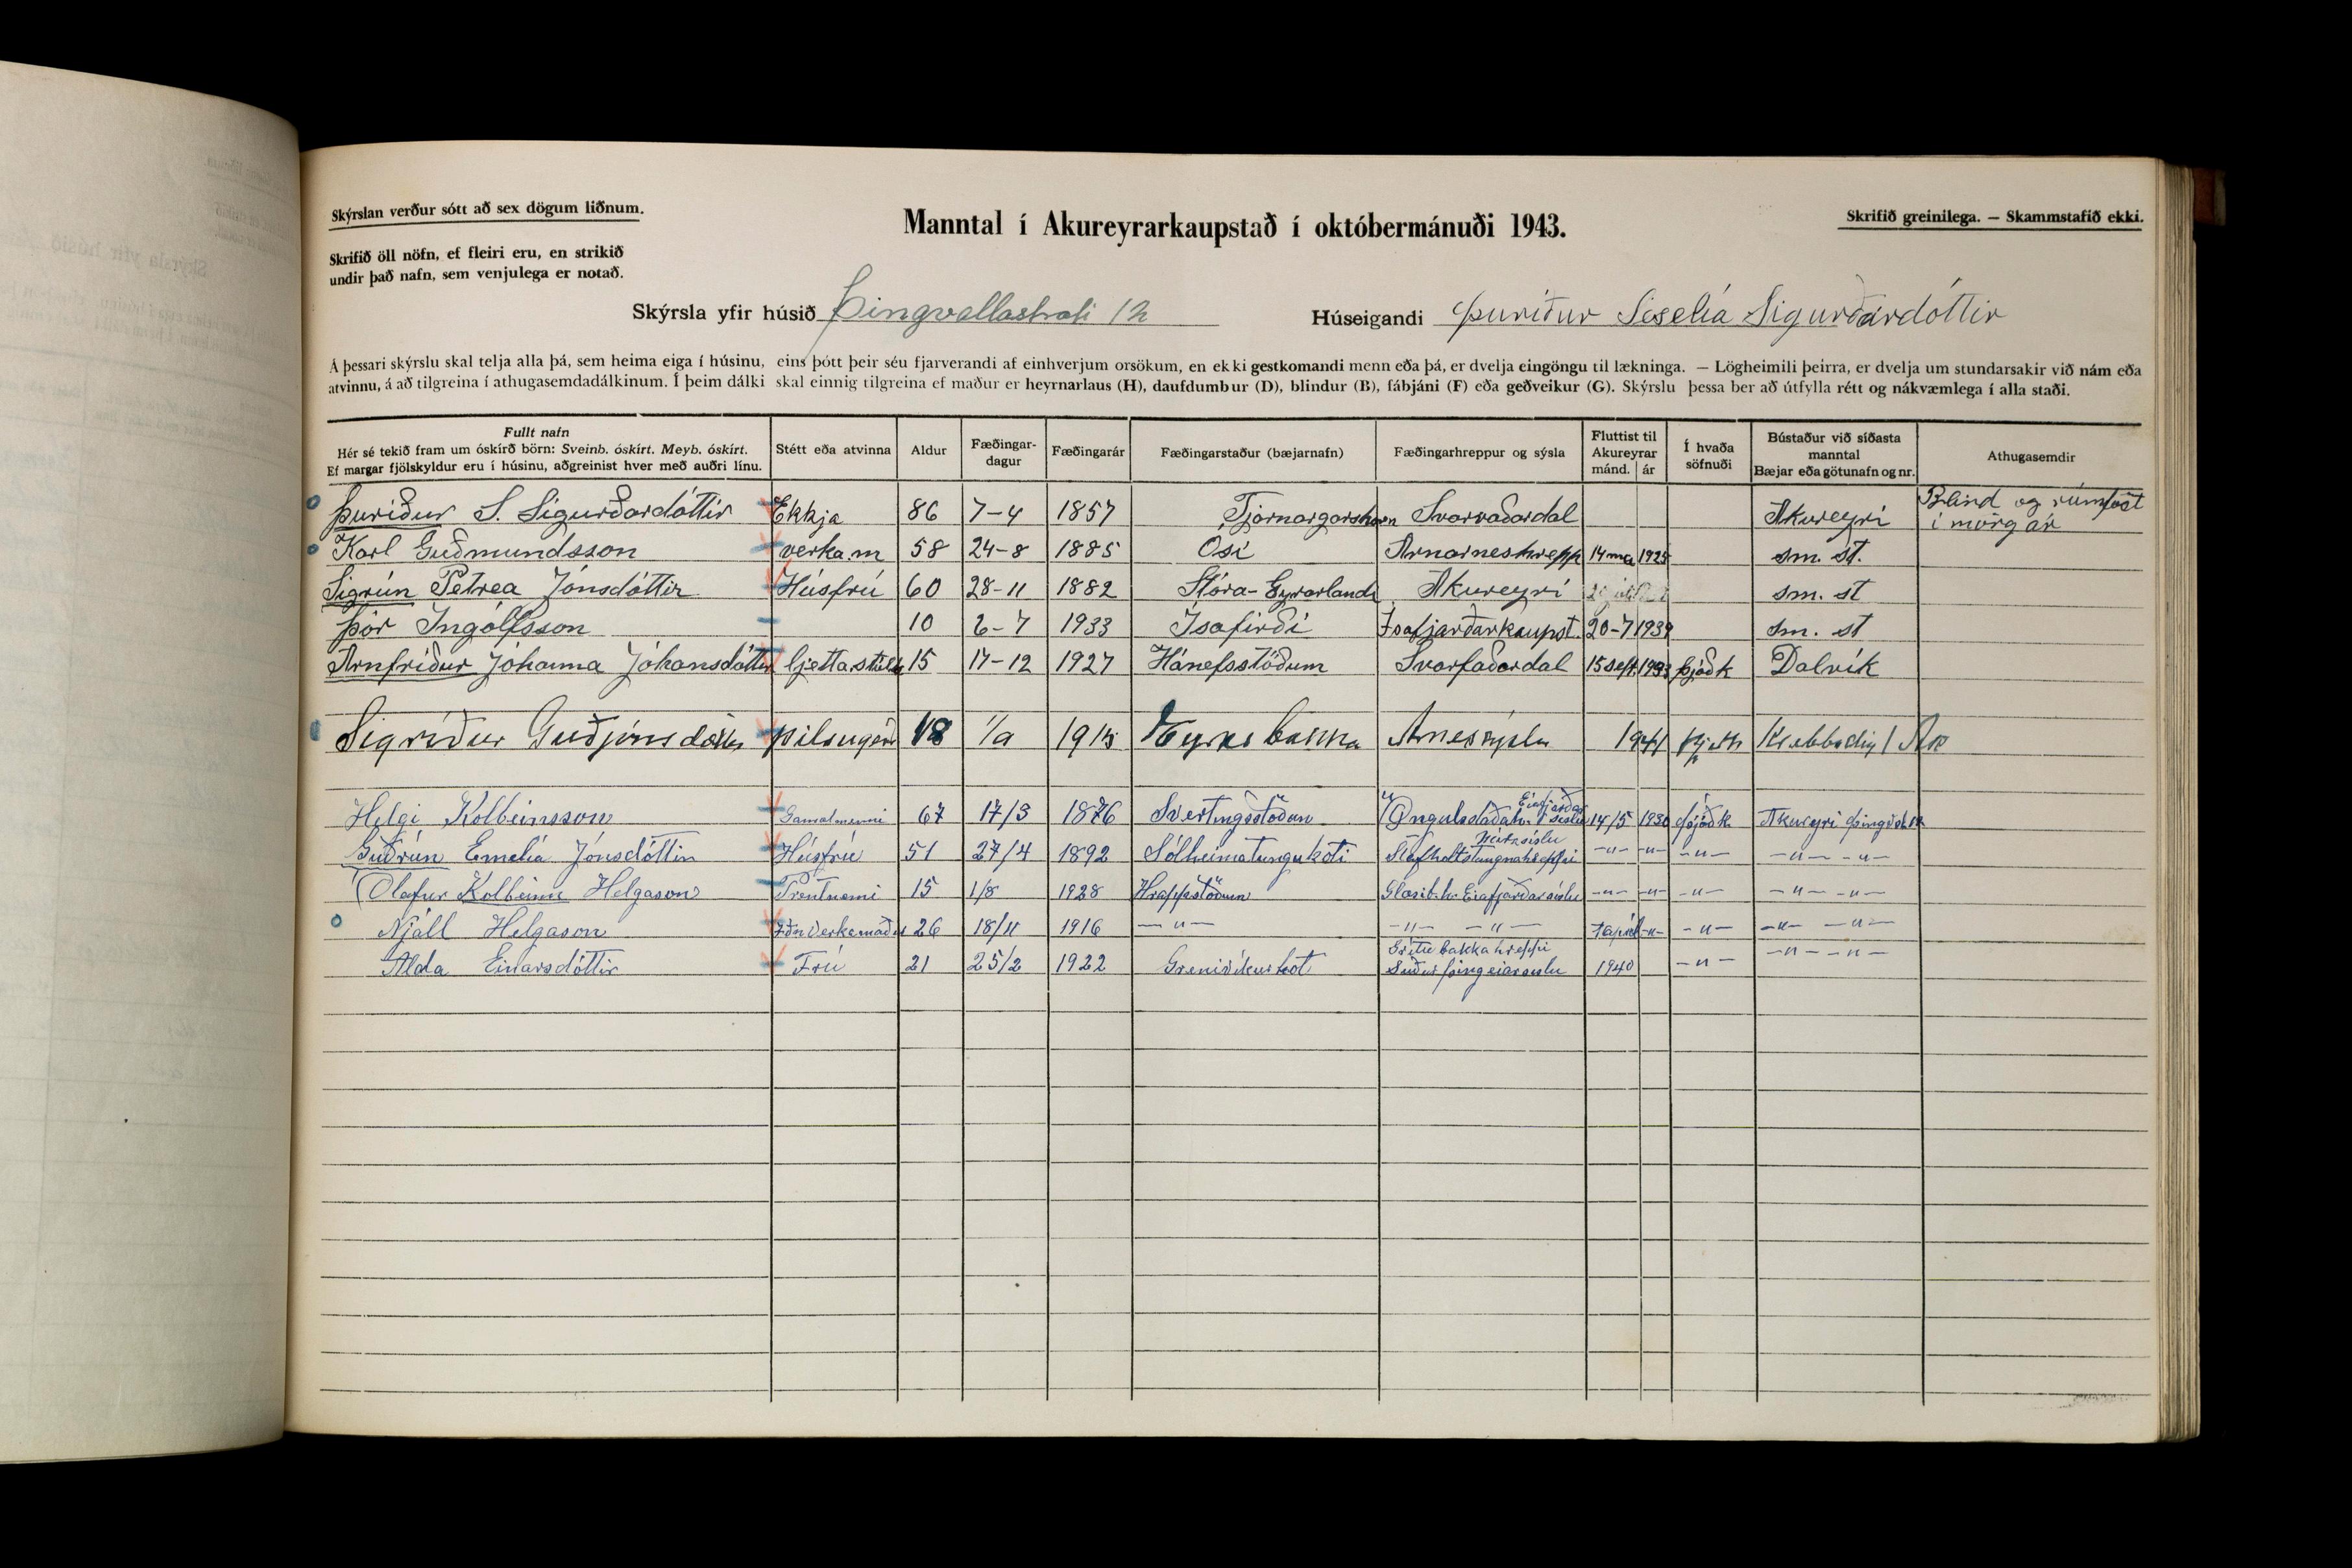 Skýrslan verður sótt að sex dögum liðnum.
Skrifið öll nöfn, ef fleiri eru, en strikið
undir það nafn, sem venjulega er notað.
Manntal í Akureyrarkaupstað í októbermánuði 1943.
Skrifið greinilega. — Skammstafið ekki.
Skýrsla yfir húsið Þingvallastræti 12 Húseigandi Þuríður Seselía Sigurðardóttir
Á þessari skýrslu skal telja alla þá, sem heima eiga í húsinu, eins þótt þeir séu fjarverandi af einhverjum orsökum, en ekki gestkomandi menn eða þá, er dvelja eingöngu til lækninga. — Lögheimili þeirra, er dvelja um stundarsakir við nám eða
atvinnu, á að tilgreina í athugasemdadálkinum. Í þeim dálki skal einnig tilgreina ef maður er heyrnarlaus (H), daufdumbur (D), blindur (B), fábjáni (F) eða geðveikur (G). Skýrslu þessa ber að útfylla rétt og nákvæmlega í alla staði.
Fullt nafn
Hér sé tekið fram um óskírð börn: Sveinb. óskírt. Meyb. óskírt.
Ef margar fjölskyldur eru í húsinu, aðgreinist hver með auðri línu.
Stétt eða atvinna
Aldur
Fæðingar-
dagur
Fæðingarár
Fæðingarstaður (bæjarnafn)
Fæðingarhreppur og sýsla
Fluttist til
Akureyrar
mánd. ár
Í hvaða
söfnuði
Bústaður við síðasta
manntal
Bæjar eða götunafn og nr.
Athugasemdir
Þuríður S. Sigurðardóttir Ekkja 86 7-4 1857 Tjarnargarshorn Svarvaðardal Akureyri Blind og rúmföst
í mörg ár
Karl Guðmundsson verka.m 58 24-8 1885 Ósi Arnarneshrepp 14 maí 1925 sm. st.
Sigrún Petrea Jónsdóttir Húsfrú 60 28-11 1882 Stóra-Eyrarlandi Akureyri sm. st
Þór Ingólfsson 10 2-7 1933 Ísafirði Ísafjarðarkaupst. 20-7 1939 sm. st
Arnfríður Jóhanna Jóhansdóttir 15 17-12 1927 Hánefsstöðum Svarfaðardal 15 sept. 1943 Þjóðk Dalvík
Sigríður Guðjónsdóttir 18 1/9 Eyrarbakka Árnessýslu 1941 Krabbastíg 1 Ak
Helgi Kolbeinsson Gamalmenni 67 17/3 1876 Svertingsstöðum Öngulsstaðahr. Eiafjarðar
síslu 14/5 1930 Þjóðk Akureyri Þingvst 12
Guðrún Emelía Jónsdóttir Húsfrú 51 27/4 1892 Sólheimatungukoti Stafholtstungnahreppi Mírasíslu -"- -"- -"- -"- -"-
Ólafur Kolbeinn Helgason Prentnemi 15 1/8 1928 Hrappstöðum Glæsib.hr. Eiafjarðarsíslu -"- -"- -"- -"- -"-
Njáll Helgason Iðnverkamaður 26 18/11 1916 -"- -"- -"- -"- -"- -"- -"-
Alda Einarsdóttir Frú 21 25/2 1922 Grítubakkahreppi
Suðurþingeiarsíslu 1940 -"- -"- -"-